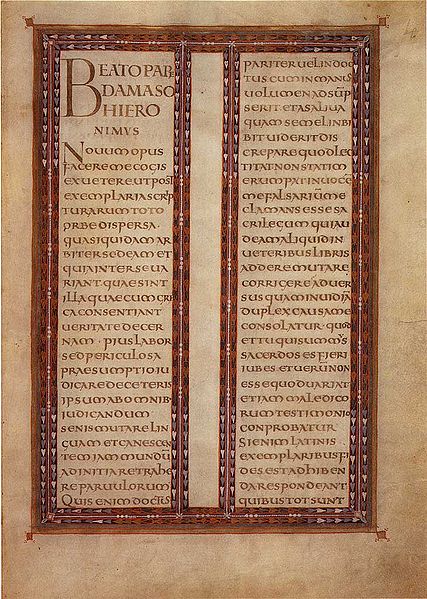 BEATO PAP
DAMASO
HIERO
NIMUS
Nouum opus
facere me cogis
ex uetere ut post
exemplaria scrip
turarum toto
orbe dispersa
quasi quidam ar
biter sedeam et
quia inter se ua
riant quae sint
illa quae cum gre
ca consentiant
ueritate decer
nam · pius labor
sed periculosa
praesumptio iu
dicare de ceteris
ipsum ab omnib;
iudicandum
senis mutare lin
guam et canescen
tem iam mundũ
ad initia retrahe
re paruulorum
Quis enim doctus
pariter uel indoc
tus cum in manus
uolumen adsũp
serit et a saliua
quam semel inbi
bit uiderit dis
crepare quod lec
titat non statim
erumpat in uocẽ
me falsarium me
clamans esse sa
crilegum qui au
deam aliquid in
ueteribus libris
addere mutare
corrigere aduer
sus quam inuidiã
duplex causa me
consolatur · quod
et tu qui summ's
sacerdos es fieri
iubes et uerum non
esse quod uariat
etiam maledico
rum testimonio
conprobatur
Si enim latinis
exemplaribus fi
des est adhiben
da respondeant
quibus tot sunt